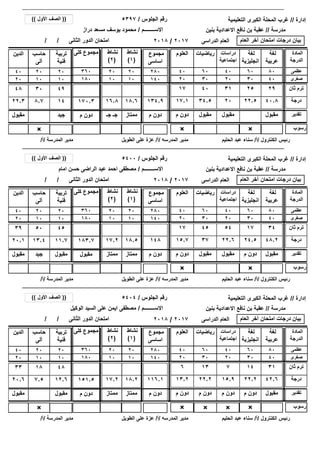 إدارة // غرب المحلة الكبرى التعليمية رقم الجلوس / ٥٣٩٧ (( الصف الأول ))
مدرسة // عقبة بن نافع الاعدادية بنين الاســــــم / محمود يوسف مسعد دراز
بيان درجات امتحان أخر العام العام الدراسى ٢٠١٧ / ٢٠١٨ امتحان الدور الثانى / /
المادة الدرجة لغة عربية لغة انجليزية دراسات اجتماعية رياضيات العلوم مجموع اساسى نشاط (١) نشاط (٢) مجموع كلى تربية فنية حاسب ألى الدين
عظمى ٨٠ ٦٠ ٤٠ ٦٠ ٤٠ ٢٨٠ ٢٠ ٢٠ ٣٦٠ ٢٠ ٢٠ ٤٠
صغرى ٤٠ ٣٠ ٢٠ ٣٠ ٢٠ ١٤٠ ١٠ ١٠ ١٨٠ ١٠ ١٠ ٢٠
ترم ثان ٢٩ ٢٥ ٣١ ٤٠ ١٧ ٤٩ ٣٠ ٤٨
درجة ٤٠,٨ ٢٢,٥ ٢٠ ٣٤,٥ ١٧,١ ١٣٤,٩ ١٨,٦ ١٦,٨ ١٧٠,٣ ١٤ ٨,٧ ٢٢,٣
تقدير مقبول دون م مقبول مقبول دون م دون م ممتاز جـ جـ دون م جيد مقبول
رسوب × ×
رئيس الكنترول // سناء عبد الحليم مدرسة // عزة على الطويل مدير المدرسة //
إدارة // غرب المحلة الكبرى التعليمية رقم الجلوس / ٥٤٠٠ (( الصف الأول ))
مدرسة // عقبة بن نافع الاعدادية بنين الاســــــم / مصطفى احمد عبد الراضى حسن امام
بيان درجات امتحان أخر العام العام الدراسى ٢٠١٧ / ٢٠١٨ امتحان الدور الثانى / /
المادة الدرجة لغة عربية لغة انجليزية دراسات اجتماعية رياضيات العلوم مجموع اساسى نشاط (١) نشاط (٢) مجموع كلى تربية فنية حاسب ألى الدين
عظمى ٨٠ ٦٠ ٤٠ ٦٠ ٤٠ ٢٨٠ ٢٠ ٢٠ ٣٦٠ ٢٠ ٢٠ ٤٠
صغرى ٤٠ ٣٠ ٢٠ ٣٠ ٢٠ ١٤٠ ١٠ ١٠ ١٨٠ ١٠ ١٠ ٢٠
ترم ثان ٣٤ ١٧ ٥٤ ٤٥ ١٧ ٤٥ ٥٠ ٣٩
درجة ٤٨,٢ ٢٤,٥ ٢٢,٦ ٣٧ ١٥,٧ ١٤٨ ١٨,٥ ١٧,٢ ١٨٣,٧ ١١,٧ ١٣,٤ ٢٠,١
تقدير مقبول دون م مقبول مقبول دون م مقبول ممتاز ممتاز مقبول مقبول جيد مقبول
رسوب × ×
رئيس الكنترول // سناء عبد الحليم مدرسة // عزة على الطويل مدير المدرسة //
إدارة // غرب المحلة الكبرى التعليمية رقم الجلوس / ٥٤٠٤ (( الصف الأول ))
مدرسة // عقبة بن نافع الاعدادية بنين الاســــــم / مصطفى ايمن على السيد الوكيل
بيان درجات امتحان أخر العام العام الدراسى ٢٠١٧ / ٢٠١٨ امتحان الدور الثانى / /
المادة الدرجة لغة عربية لغة انجليزية دراسات اجتماعية رياضيات العلوم مجموع اساسى نشاط (١) نشاط (٢) مجموع كلى تربية فنية حاسب ألى الدين
عظمى ٨٠ ٦٠ ٤٠ ٦٠ ٤٠ ٢٨٠ ٢٠ ٢٠ ٣٦٠ ٢٠ ٢٠ ٤٠
صغرى ٤٠ ٣٠ ٢٠ ٣٠ ٢٠ ١٤٠ ١٠ ١٠ ١٨٠ ١٠ ١٠ ٢٠
ترم ثان ٣١ ١٤ ٧ ١٣ ٦ ٤٨ ١٨ ٣٣
درجة ٤٢,٦ ٢٢,٢ ١٥,٩ ٢٢,٢ ١٣,٢ ١١٦,١ ١٨,٢ ١٧,٢ ١٥١,٥ ١٢,٦ ٧,٥ ٢٠,٦
تقدير مقبول دون م دون م دون م دون م دون م ممتاز ممتاز دون م مقبول دون م مقبول
رسوب × × × × ×
رئيس الكنترول // سناء عبد الحليم مدرسة // عزة على الطويل مدير المدرسة //